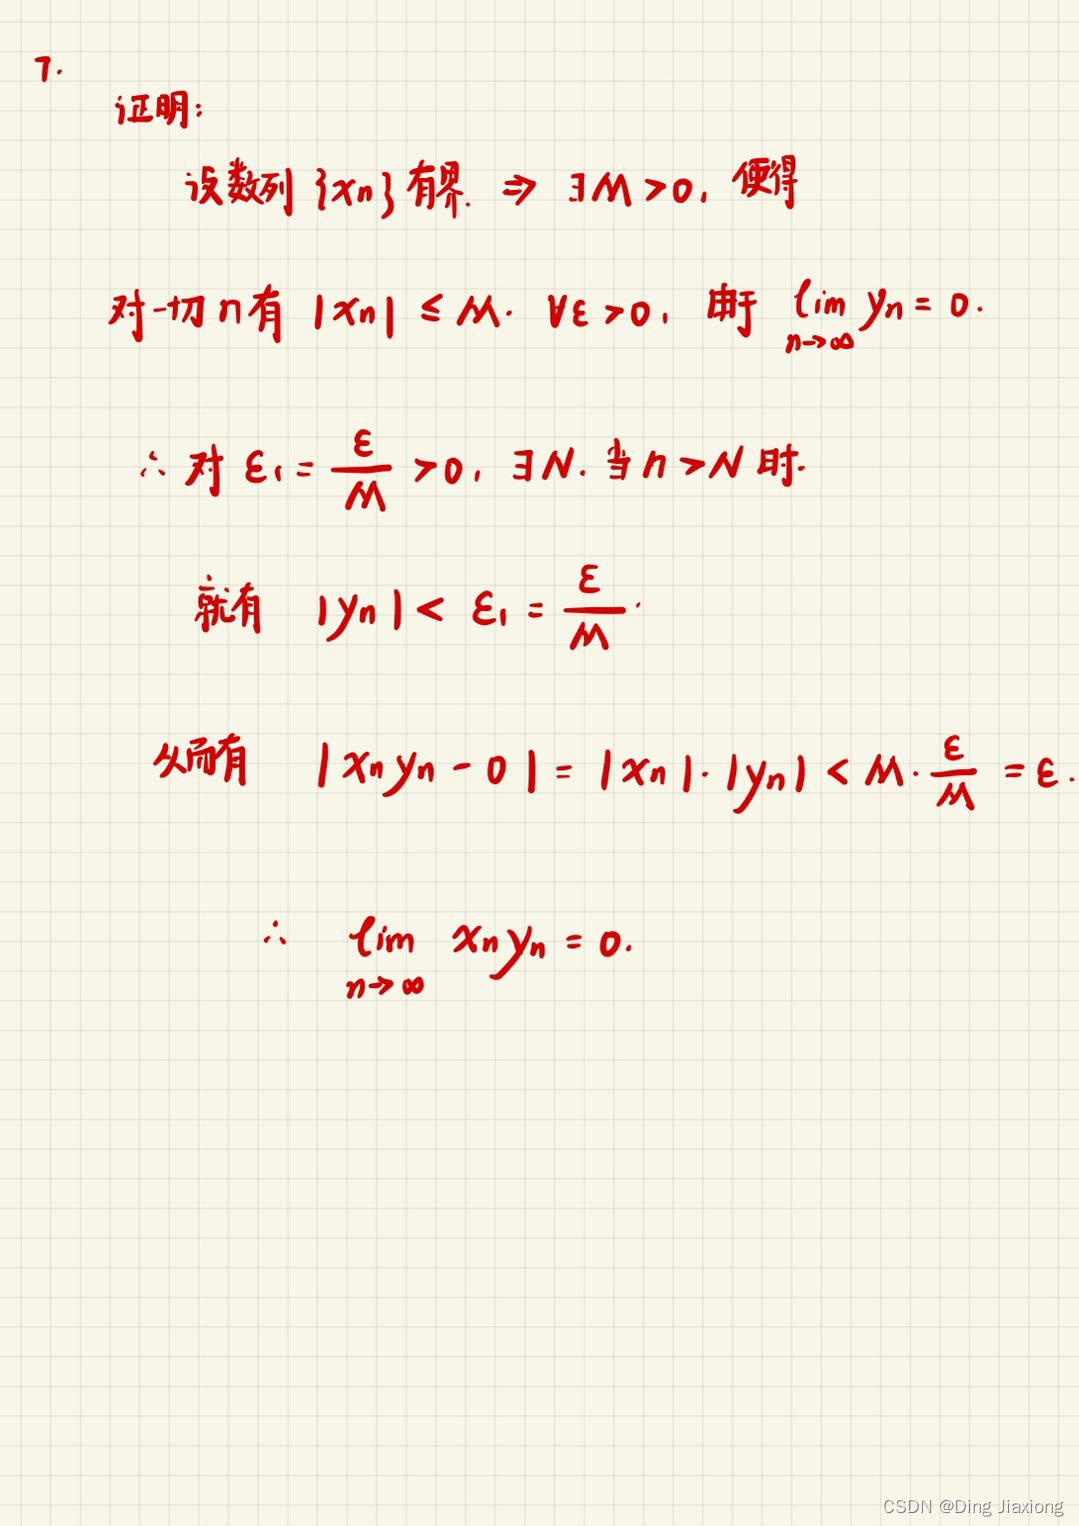 7.
证明:
设数列 {xn} 有界. ⇒ ∃M > 0, 使得
对一切 n 有 |xn| ≤ M. ∀ε > 0, 由于 lim n→∞ yn = 0.
∴ 对 ε1 = ε/M > 0, ∃N. 当 n > N 时.
就有 |yn| < ε1 = ε/M.
从而有 |xnyn - 0| = |xn|·|yn| < M·ε/M = ε.
∴ lim n→∞ xnyn = 0.
CSDN @Ding Jiaxiong